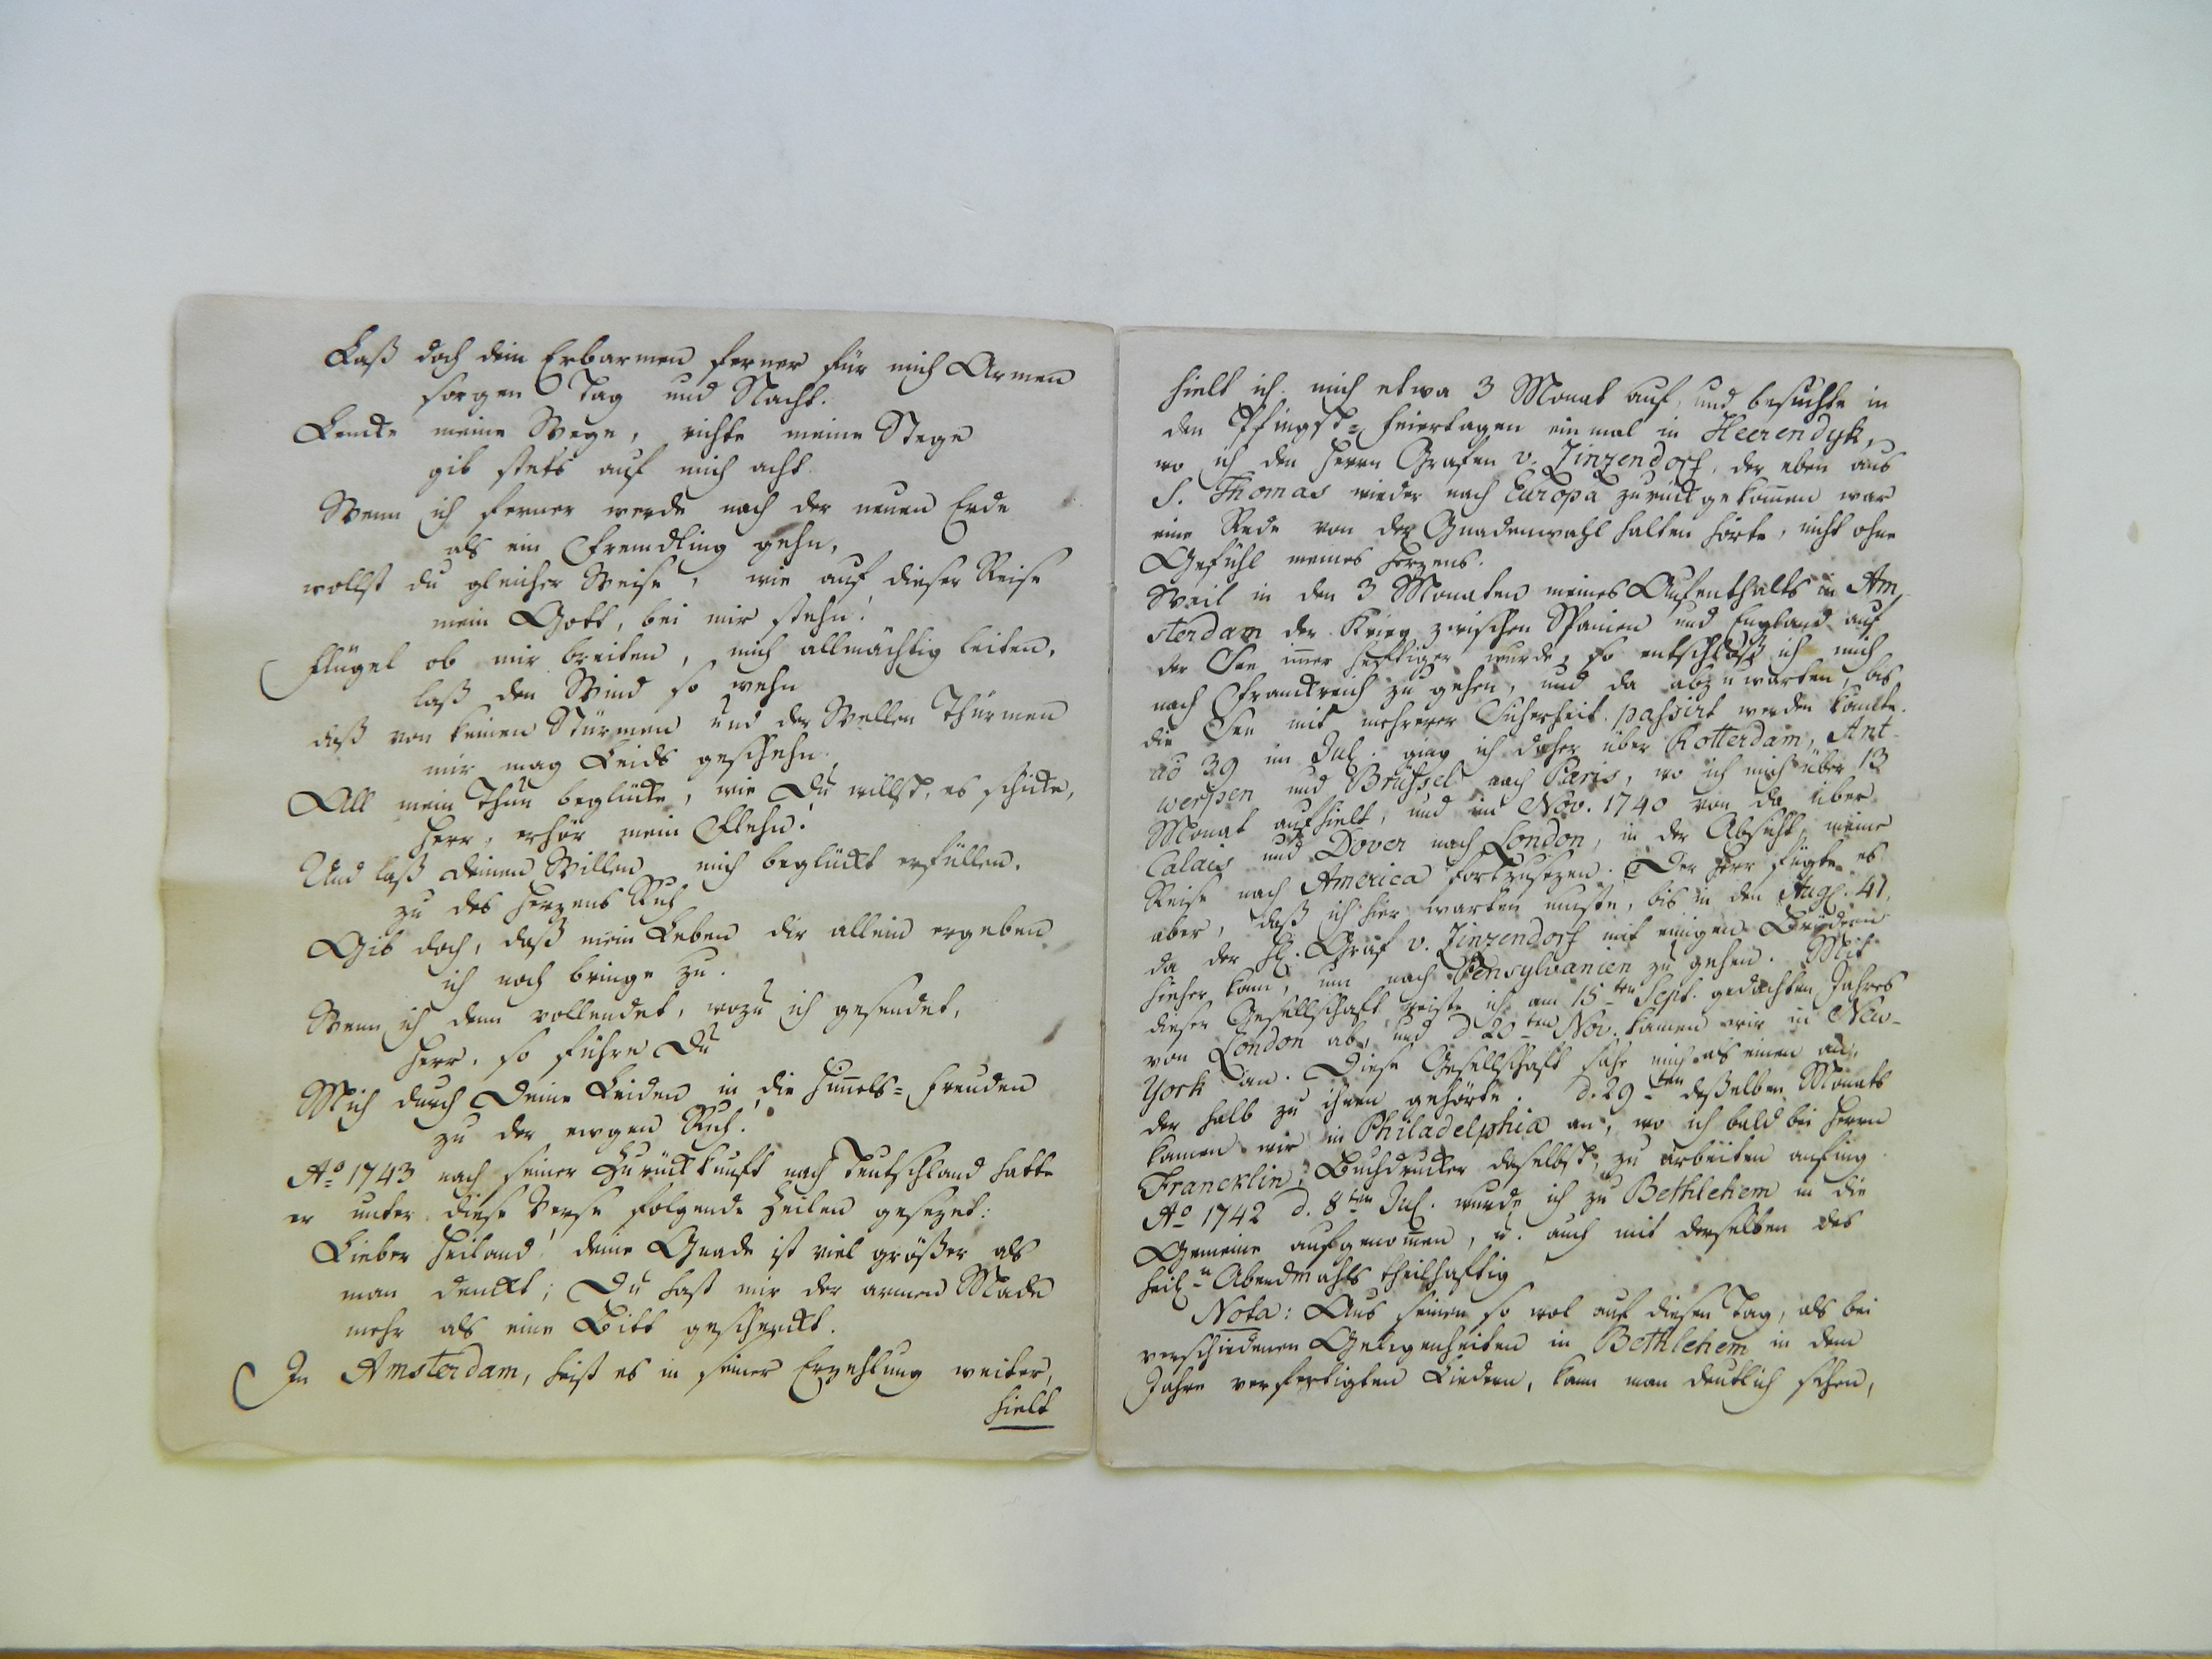 Laß doch dein Erbarmen ferner für mich Armen
sorgen Tag und Nacht.
Lencke meine Wege, richte meine Stege
gib stets auf mich acht.
Wenn ich ferner werde nach der neuen Erde
als ein Fremdling gehn,
wollst du gleicher Weise, wie auf dieser Reise
mein Gott, bei mir stehn.
Flügel ob mir breiten, mich allmächtig leiten,
laß den Wind so wehn
daß von keinen Stürmen und der Wellen Thürmen
mir mag Leids geschehn.
All mein Thun beglücke, wie Du willst, es schicke,
Herr, erhör mein Flehn!
Und laß deinen Willen mich beglückt erfüllen,
zu des Herzens Ruh
Gib doch, daß mein Leben dir allein ergeben
ich noch bringe zu.
Wenn ich denn vollendet, wozu ich gesendet,
Herr, so führe Du
Mich durch Deine Leiden in die Him̅els-Freuden
zu der ewgen Ruh!
Ao 1743 nach seiner Zurückkunft nach Teutschland hatte
er unter diese Verse folgende Zeilen gesezet:
Lieber Heiland! deine Gnade ist viel größer als
man denckt; Du hast mir der armen Made
mehr als eine Bitt geschenckt.
In Amsterdam, heist es in seiner Erzehlung weiter,
hielt
hielt ich mich etwa 3 Monat auf, und besuchte in
den Pfingst-Feiertagen einmal in Heerendyk,
wo ich den Herrn Grafen v. Zinzendorf, der eben aus
S. Thomas wieder nach Europa zurückgekom̅en war
eine Rede von der Gnadenwahl halten hörte, nicht ohne
Gefühl meines Herzens.
Weil in den 3 Monaten meines Aufenthalts in Am-
sterdam der Krieg zwischen Spanien und England auf
der See im̅er heftiger wurde, so entschloß ich mich
nach Franckreich zu gehen, und da abzuwarten, bis
die See mit mehrerer Sicherheit passirt werden kön̅te.
ao 39 im Jul. ging ich daher über Rotterdam, Ant-
werpen und Brüssel nach Paris, wo ich mich über 13
Monat aufhielt, und im Nov. 1740 von da über
Calais und Dover nach London, in der Absicht, meine
Reise nach America fortzusezen. Der Herr fügte es
aber, daß ich hier warten muste, bis in den Aug. 41,
da der H. Graf v. Zinzendorf mit einigen Brüdern
hieher kam, um nach Pensylvanien zu gehen. Mit
dieser Gesellschaft reiste ich am 15ten Sept. gedachten Jahres
von London ab, und d 20ten Nov. kamen wir in Neu-
York an. Diese Gesellschaft sahe mich als einen an,
der halb zu ihnen gehörte. d. 29ten desselben Monats
kamen wir in Philadelphia an, wo ich bald bei Herrn
Francklin, Buchdrucker daselbst, zu arbeiten anfing
Ao 1742 d. 8ten Jul. wurde ich zu Bethlehem in die
Gemeine aufgenom̅en, u. auch mit derselben des
heiln Abendmahls theilhaftig
Nota: Aus seinen so wol auf diesen Tag, als bei
verschiedenen Gelegenheiten in Bethlehem in dem
Jahre verfertigten Liedern, kann man deutlich sehen,